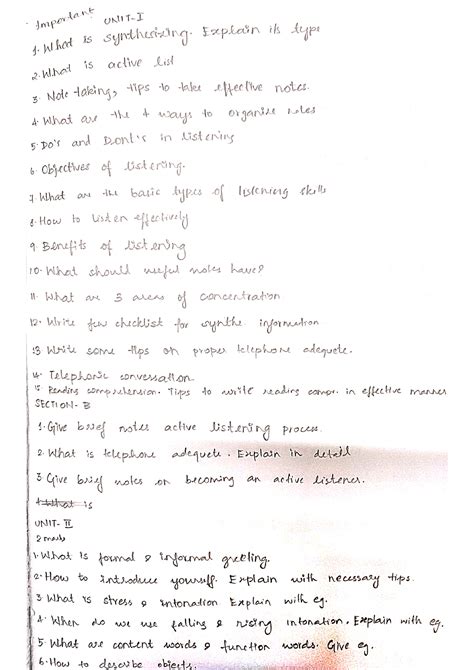 Important UNIT-I
1. What is synthesizing. Explain its type
2. What is active list
3. Note-taking, tips to take effective notes.
4. What are the 4 ways to organize notes
5. Do's and Dont's in listening
6. Objectives of listening.
7. What are the basic types of listening skills
8. How to listen effectively
9. Benefits of listening
10. What should useful notes have?
11. What are 3 areas of concentration
12. Write few checklist for synthe information
13. Write some tips on proper telephone adequete.
14. Telephonic conversation.
15. Reading comprehension. Tips to write reading compr. in effective manner
SECTION-B
1. Give brief notes active listening process.
2. What is telephone adequete. Explain in detail
3. Give brief notes on becoming an active listener.
4. What is
UNIT-II
2 marks
1. What is formal & informal greeting.
2. How to introduce yourself. Explain with necessary tips.
3. What is stress & intonation Explain with eg.
4. When do we use falling & rising intonation. Explain with eg.
5. What are content words & function words. Give eg.
6. How to describe objects.